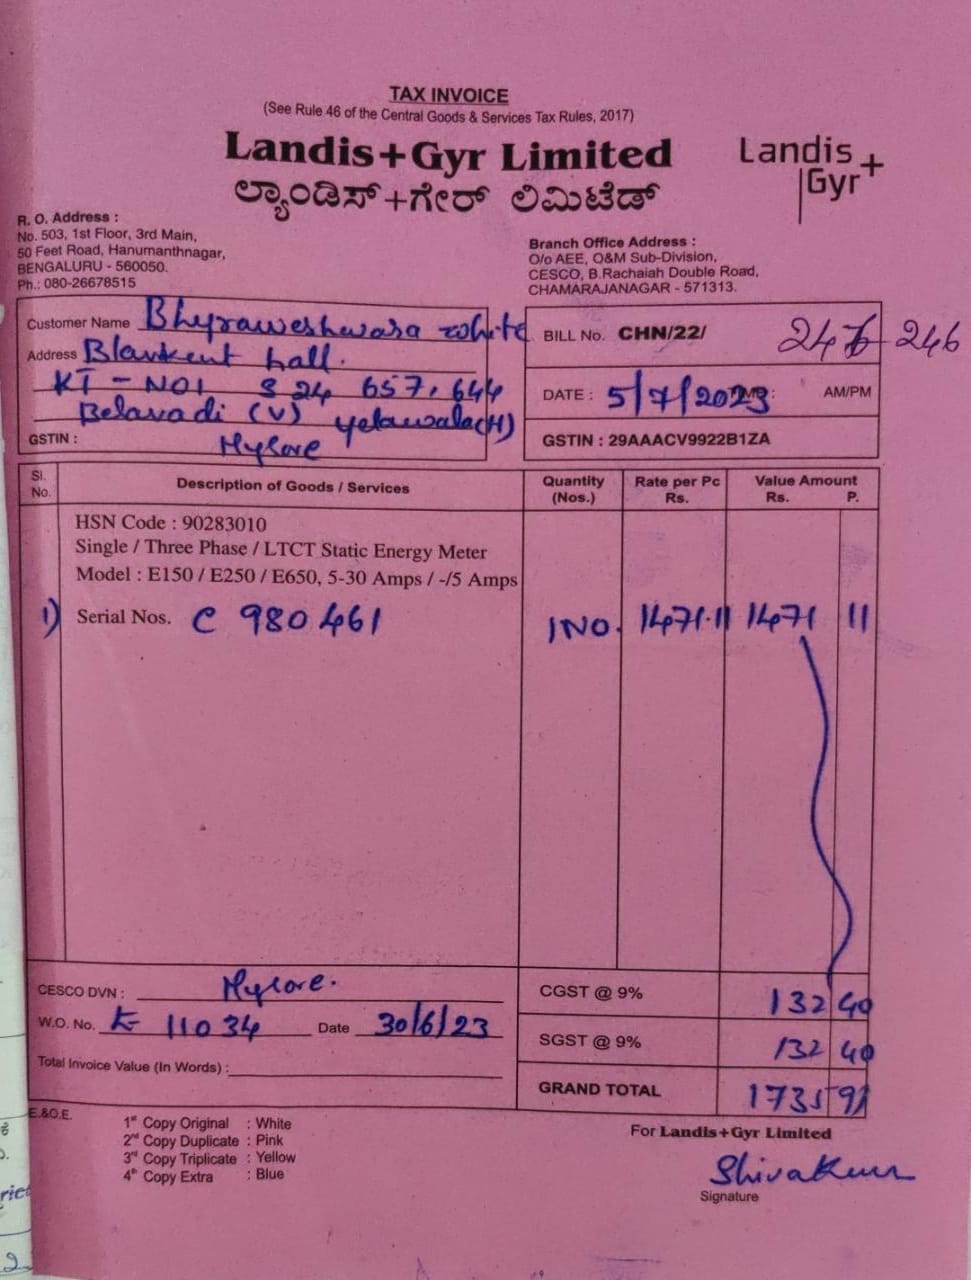 TAX INVOICE
(See Rule 46 of the Central Goods & Services Tax Rules, 2017)
Landis+Gyr Limited
ಲ್ಯಾಂಡಿಸ್+ಗೇರ್ ಲಿಮಿಟೆಡ್
Landis
Gyr+
R. O. Address :
No. 503, 1st Floor, 3rd Main,
50 Feet Road, Hanumanthnagar,
BENGALURU - 560050.
Ph.: 080-26678515
Branch Office Address :
O/o AEE, O&M Sub-Division,
CESCO, B.Rachaiah Double Road,
CHAMARAJANAGAR - 571313.
Customer Name Bhyraweshwara white
Address Blankent hall.
KT - NO1 S 24 657, 644
Belavadi (V) Yelawala(H)
GSTIN : Mysore
BILL No. CHN/22/ 246 246
DATE : 5/7/2023 AM/PM
GSTIN : 29AAACV9922B1ZA
Sl. No. Description of Goods / Services Quantity (Nos.) Rate per Pc Rs. Value Amount Rs. P.
HSN Code : 90283010
Single / Three Phase / LTCT Static Energy Meter
Model : E150 / E250 / E650, 5-30 Amps / -/5 Amps
1) Serial Nos. C 980461 1NO. 1471.11 1471 11
CESCO DVN : Mysore.
W.O. No. K 11034 Date 30/6/23
Total Invoice Value (In Words) :
CGST @ 9% 132 40
SGST @ 9% 132 40
GRAND TOTAL 1735 91
E.&O.E.
1st Copy Original : White
2nd Copy Duplicate : Pink
3rd Copy Triplicate : Yellow
4th Copy Extra : Blue
For Landis+Gyr Limited
Shivakumar
Signature